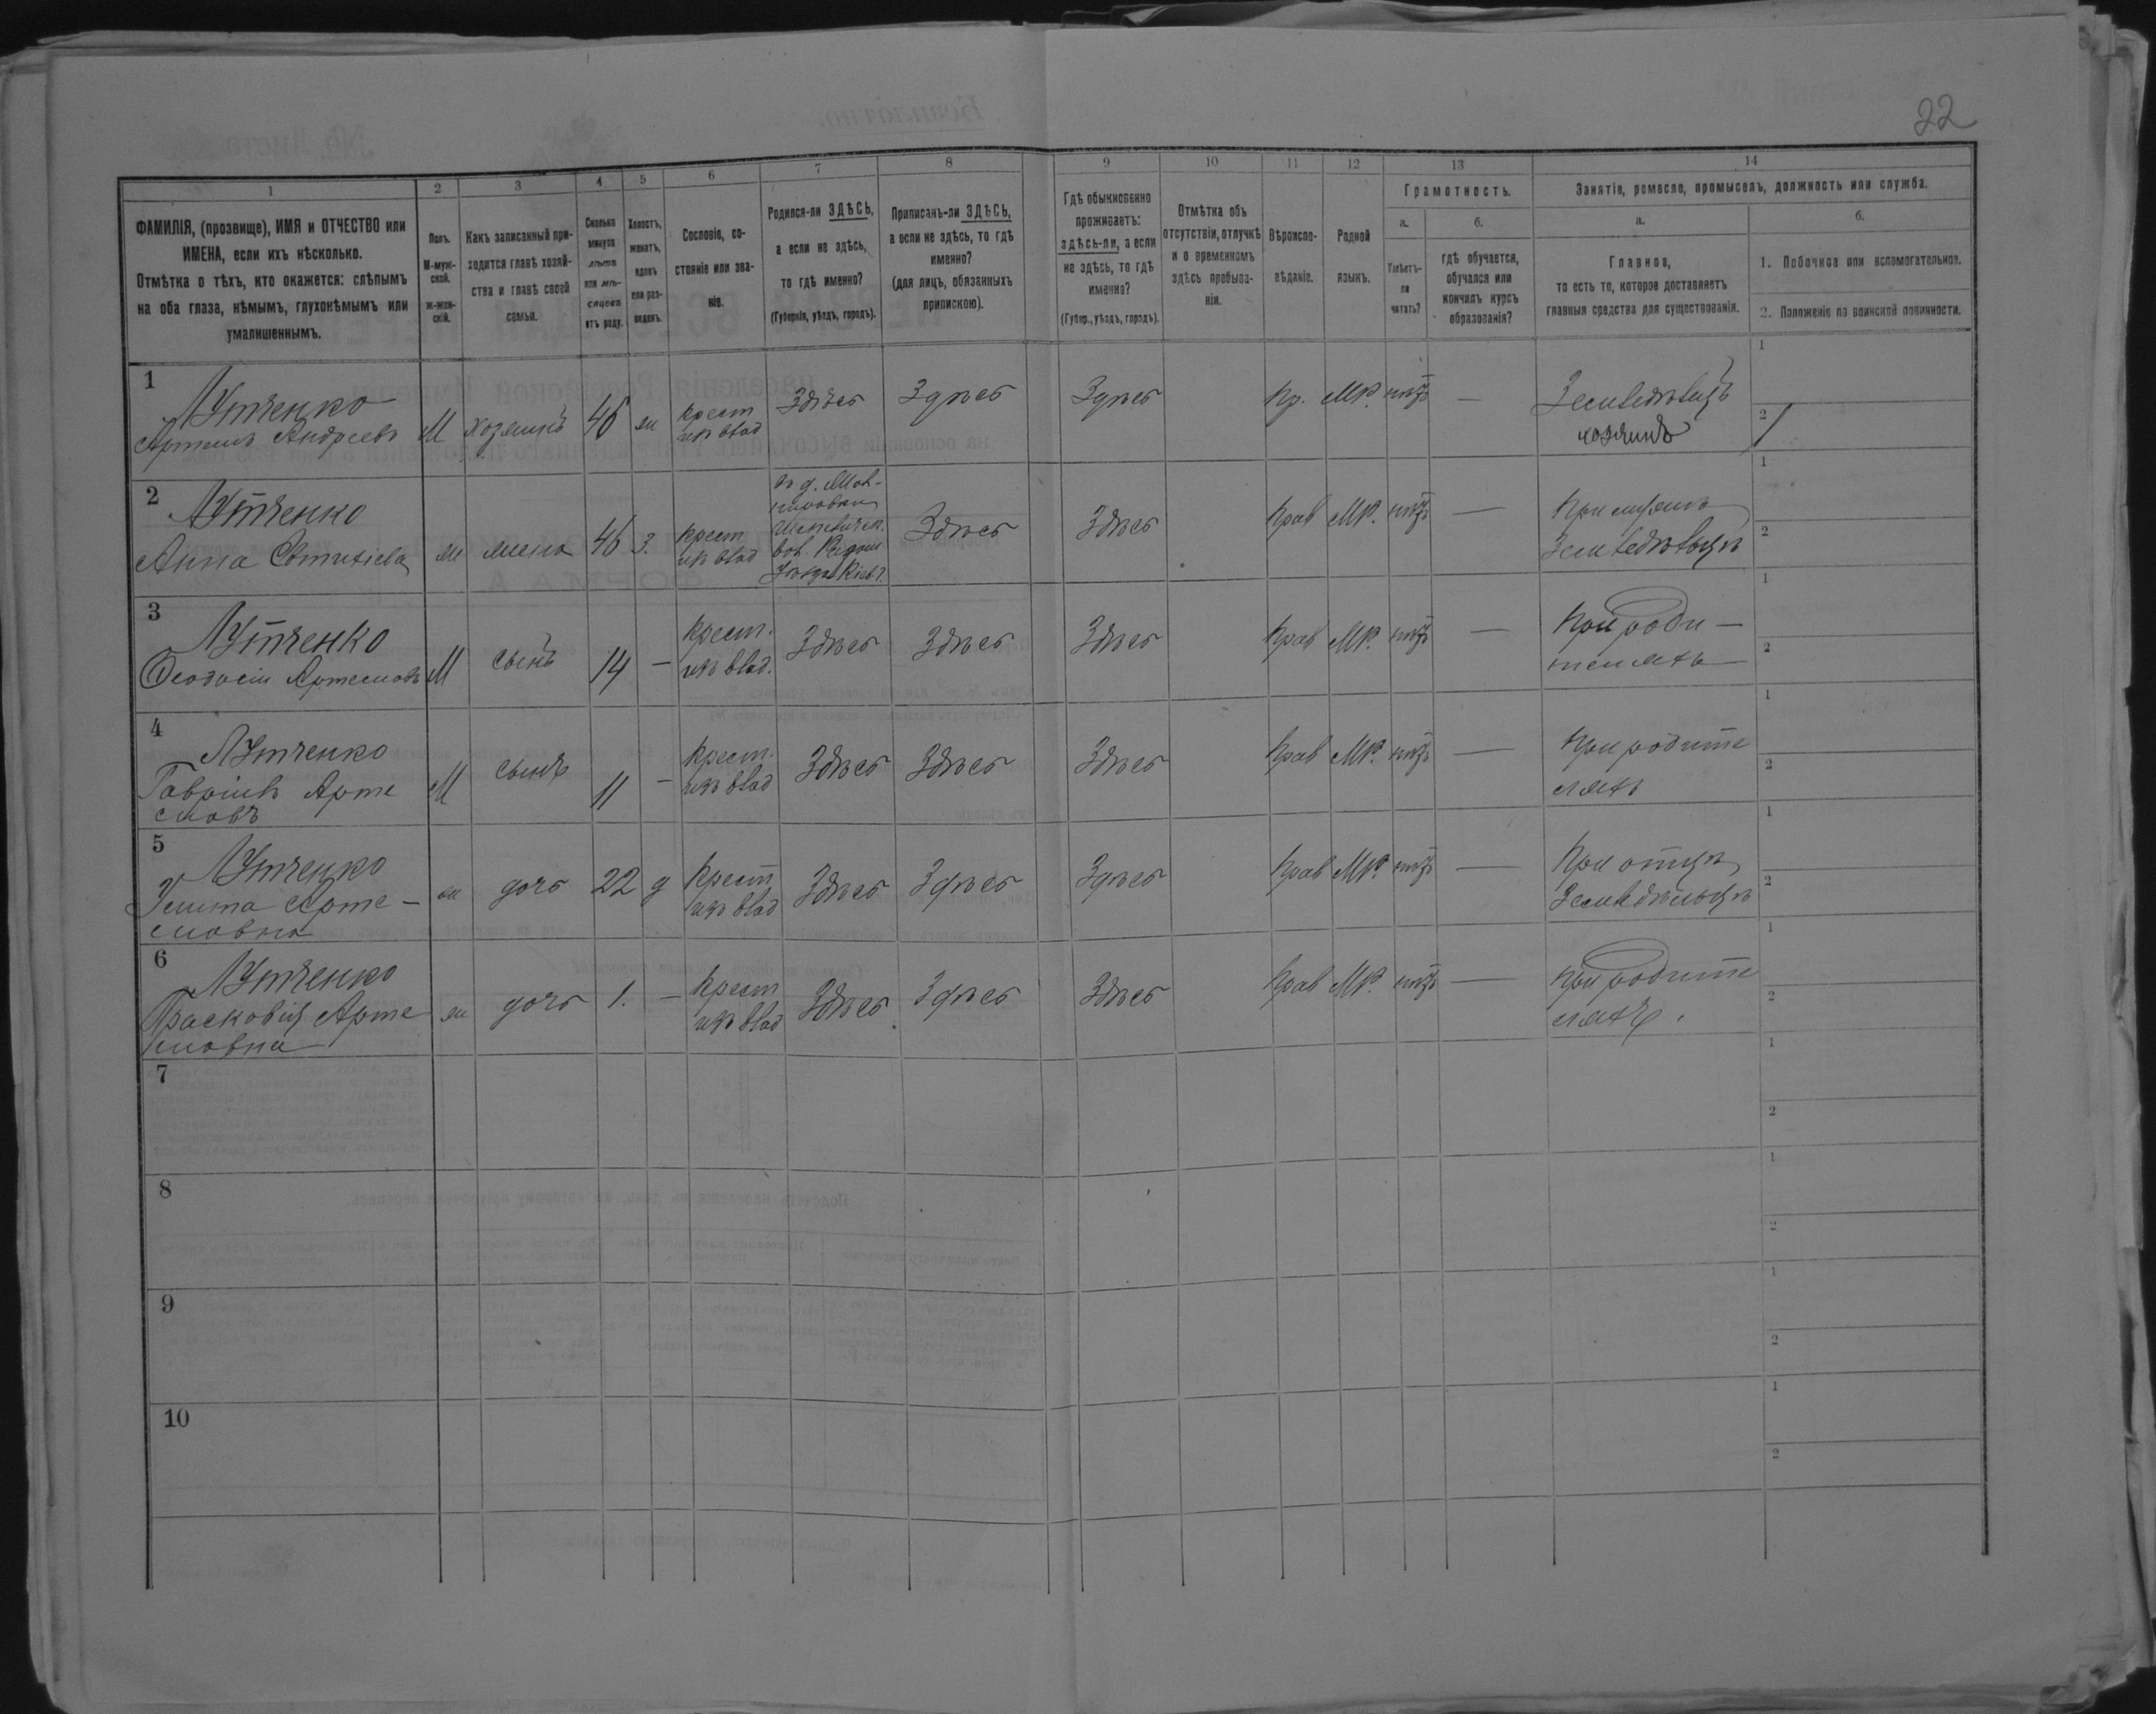 22
1
2
3
4
5
6
7
8
9
10
11
12
13
14
ФАМИЛІЯ, (прозвище), ИМЯ и ОТЧЕСТВО или
ИМЕНА, если ихъ нѣсколько.
Отмѣтка о тѣхъ, кто окажется: слѣпымъ
на оба глаза, нѣмымъ, глухонѣмымъ или
умалишеннымъ.
Полъ.
М-муж-
ской.
ж-жен-
скій.
Какъ записанный при-
ходится главѣ хозяй-
ства и главѣ своей
семьи.
Сколько
минуло
лѣтъ
или мѣ-
сяцевъ
отъ роду.
Холостъ,
женатъ,
вдовъ
или раз-
веденъ.
Сословіе, со-
стояніе или зва-
ніе.
Родился-ли ЗДѢСЬ,
а если не здѣсь,
то гдѣ именно?
(Губернія, уѣздъ, городъ).
Приписанъ-ли ЗДѢСЬ,
а если не здѣсь, то гдѣ
именно?
(для лицъ, обязанныхъ
припискою).
Гдѣ обыкновенно
проживаетъ:
здѣсь-ли, а если
не здѣсь, то гдѣ
именно?
(Губер., уѣздъ, городъ).
Отмѣтка объ
отсутствіи, отлучкѣ
и о временномъ
здѣсь пребыва-
ніи.
Вѣроиспо-
вѣданіе.
Родной
языкъ.
Грамотность.
а.
Умѣетъ-
ли
читать?
б.
гдѣ обучается,
обучался или
кончилъ курсъ
образованія?
Занятіе, ремесло, промыселъ, должность или служба.
а.
Главное,
то есть то, которое доставляетъ
главныя средства для существованія.
б.
1. Побочное или вспомогательное.
2. Положеніе по воинской повинности.
1
Лутченко
Артемъ Андреевъ
М
хозяинъ
46
ж
крест
изъ влад
Здѣсь
Здѣсь
Здѣсь
Пр.
МР.
нѣтъ
—
Землед�ѣлецъ
хозяинъ
1
2
2
Лутченко
Анна
ж
жена
46
з.
крест
изъ влад
Здѣсь
Здѣсь
Прав
МР.
нѣтъ
—
При мужѣ
1
2
3
Лутченко
Ѳеодосій Артемовъ
М
сынъ
14
—
крест.
изъ влад.
Здѣсь
Здѣсь
Здѣсь
Прав
МР.
нѣтъ
—
При роди-
теляхъ
1
2
4
Лутченко
Гавріилъ Арте
мовъ
М
сынъ
11
—
крест.
изъ влад
Здѣсь
Здѣсь
Здѣсь
Прав
МР.
нѣтъ
—
При родите
ляхъ
1
2
5
Лутченко
Арте-
мовна
ж
дочь
22
д
Крест
изъ влад
Здѣсь
Здѣсь
Здѣсь
Прав
МР.
нѣтъ
—
При отцѣ
Земледѣльцѣ
1
2
6
Лутченко
Арте
мовна
ж
дочь
1.
—
Крест
изъ влад
Здѣсь
Здѣсь
Здѣсь
Прав
МР.
нѣтъ
—
При родите
ляхъ.
1
2
7
1
2
8
1
2
9
1
2
10
1
2